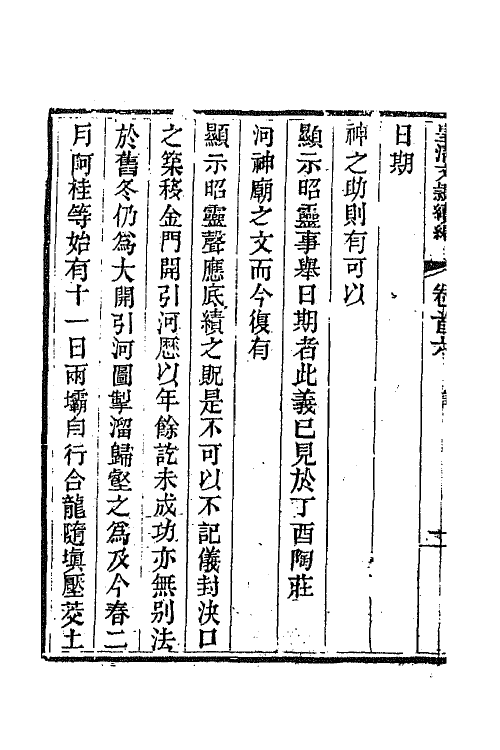 皇清文穎續編　卷首六
日期
神之助則有可以
顯示昭靈事舉日期者此義已見於丁酉陶莊
河神廟之文而今復有
顯示昭靈聲應底績之貺是不可以不記儀封決口
之築移金門開引河歷以年餘訖未成功亦無别法
於舊冬仍為大開引河圖掣溜歸壑之為及今春二
月阿桂等始有十一日兩壩自行合龍隨塡壓茭土